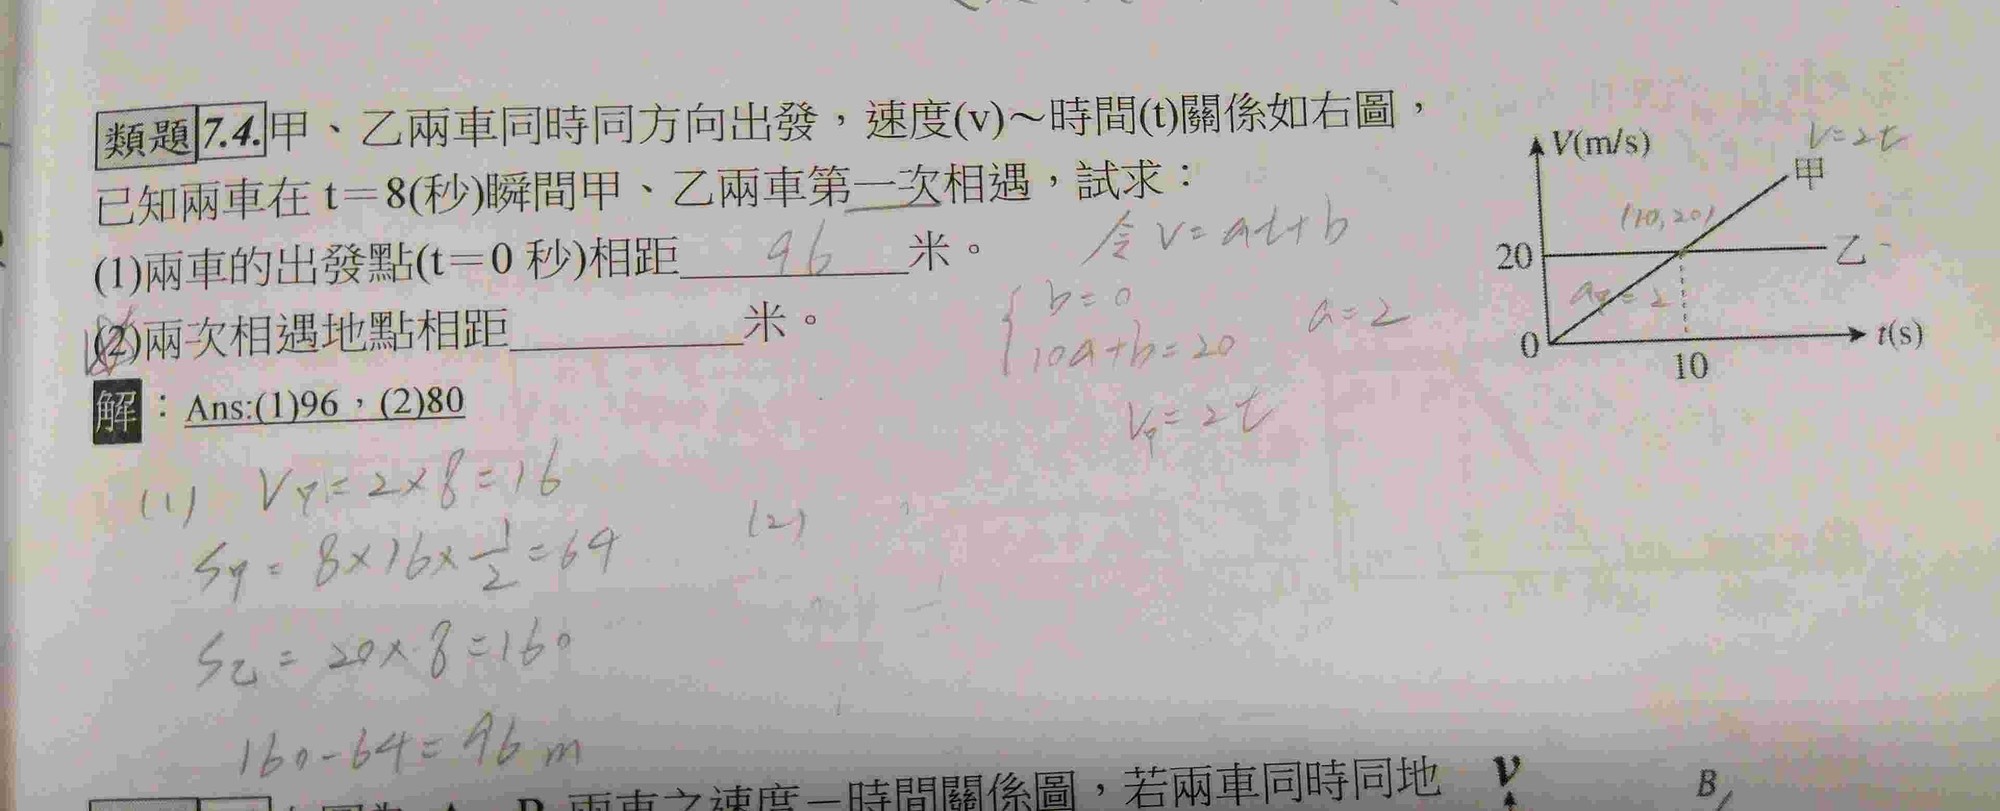 類題 7.4. 甲、乙兩車同時同方向出發，速度(v)～時間(t)關係如右圖，
已知兩車在 t＝8(秒)瞬間甲、乙兩車第一次相遇，試求：
(1)兩車的出發點(t＝0 秒)相距 96 米。
(2)兩次相遇地點相距________米。
解：Ans:(1)96，(2)80
V(m/s)
V=2t
甲
(10,20)
20
乙
a甲=2
0
10
t(s)
令 V=at+b
b=0
10a+b=20
a=2
V甲=2t
(1) V甲=2×8=16
S甲=8×16×1/2=64
S乙=20×8=160
160-64=96 m
(2)
兩車之速度－時間關係圖，若兩車同時同地
v
B